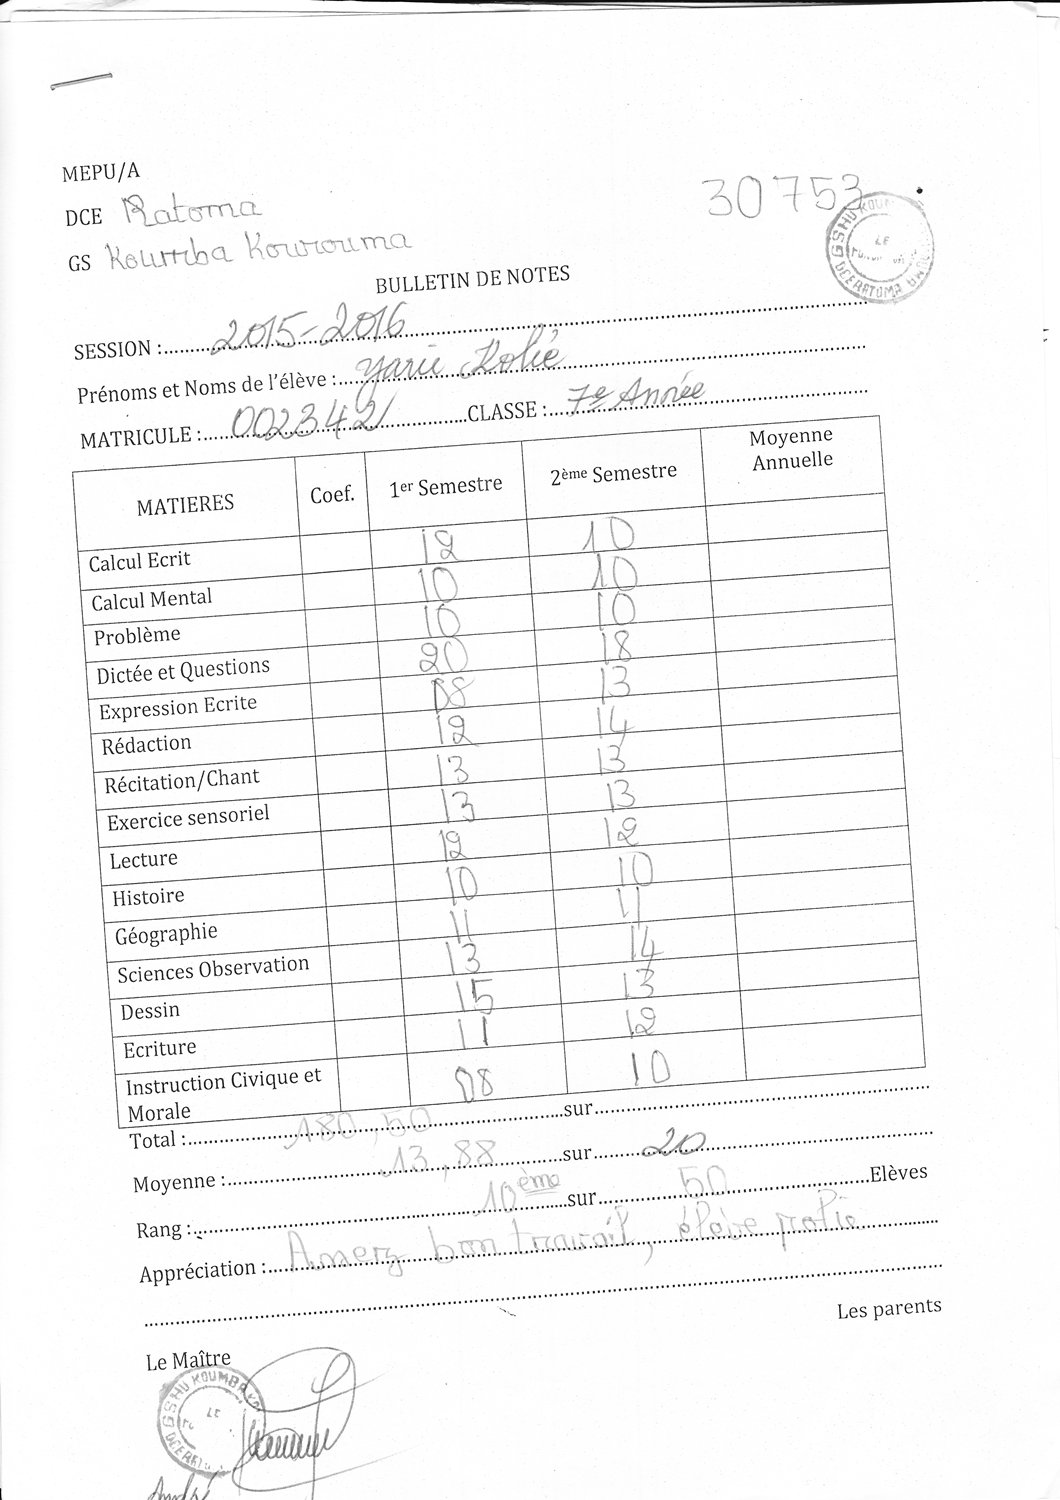 MEPU/A
30753
DCE Ratoma
GS Koumba Kourouma
BULLETIN DE NOTES
SESSION : 2015-2016
Prénoms et Noms de l'élève : Yarie Kolié
MATRICULE : 0023421 CLASSE : 7e Année
MATIERES Coef. 1er Semestre 2ème Semestre Moyenne Annuelle
Calcul Ecrit 12 10
Calcul Mental 10 10
Problème 10 10
Dictée et Questions 20 18
Expression Ecrite 08 13
Rédaction 12 14
Récitation/Chant 13 13
Exercice sensoriel 13 13
Lecture 12 12
Histoire 10 10
Géographie 11 11
Sciences Observation 13 14
Dessin 15 13
Ecriture 11 12
Instruction Civique et Morale 08 10
Total : 180,50 sur
Moyenne : 13,88 sur 20
Rang : 10ème sur 50 Elèves
Appréciation : Amerz bon travail, élève polie
Les parents
Le Maître
GSHU KOUMBA
André